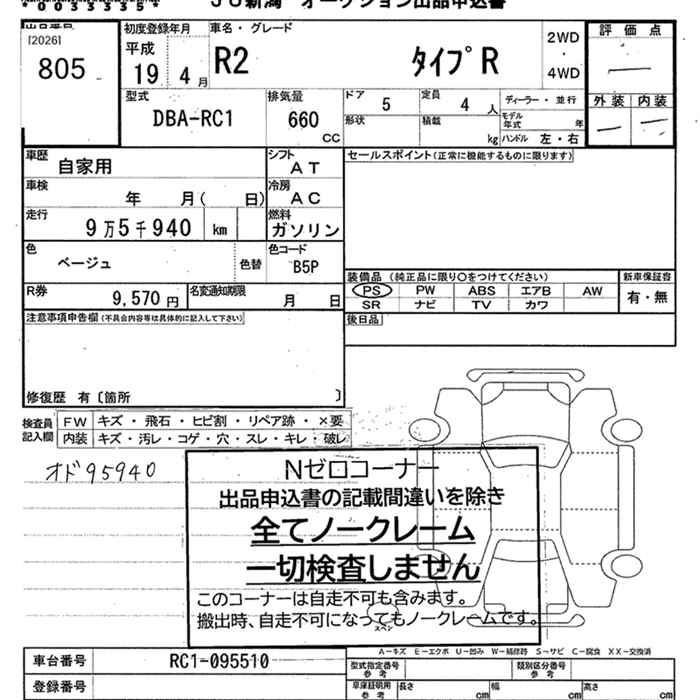 JU新潟 オークション出品申込書
出品番号
[2026]
805
初度登録年月
平成
19 4 月
車名・グレード
R2 タイプR
2WD
・
4WD
評 価 点
外装 内装
型式
DBA-RC1
排気量
660
CC
ドア 5
定員 4 人
形状
積載 kg
ディーラー・並行
モデル年式 年
ハンドル 左・右
車歴 自家用
シフト AT
セールスポイント(正常に機能するものに限ります)
車検 年 月( 日)
冷房 AC
走行 9万5千940 km
燃料 ガソリン
色 ベージュ 色替
色コード B5P
装備品 (純正品に限り○をつけてください)
新車保証書
PS PW ABS エアB AW
有・無
SR ナビ TV カワ
R券 9,570 円
名変通知期限 月 日
後日品
注意事項申告欄(不具合内容等は具体的に記入して下さい)
修復歴 有〔箇所 〕
検査員記入欄
FW キズ・飛石・ヒビ割・リペア跡・×要
内装 キズ・汚レ・コゲ・穴・スレ・キレ・破レ
オド95940
Nゼロコーナー
出品申込書の記載間違いを除き
全てノークレーム
一切検査しません
このコーナーは自走不可も含みます。
搬出時、自走不可になってもノークレームです。
スペン
A-キズ E-エクボ U-凹み W-補修跡 S-サビ C-腐食 XX-交換済
車台番号 RC1-095510
型式指定番号 参考
類別区分番号 参考
登録番号
車庫証明用 参考
長さ cm
幅 cm
高さ cm